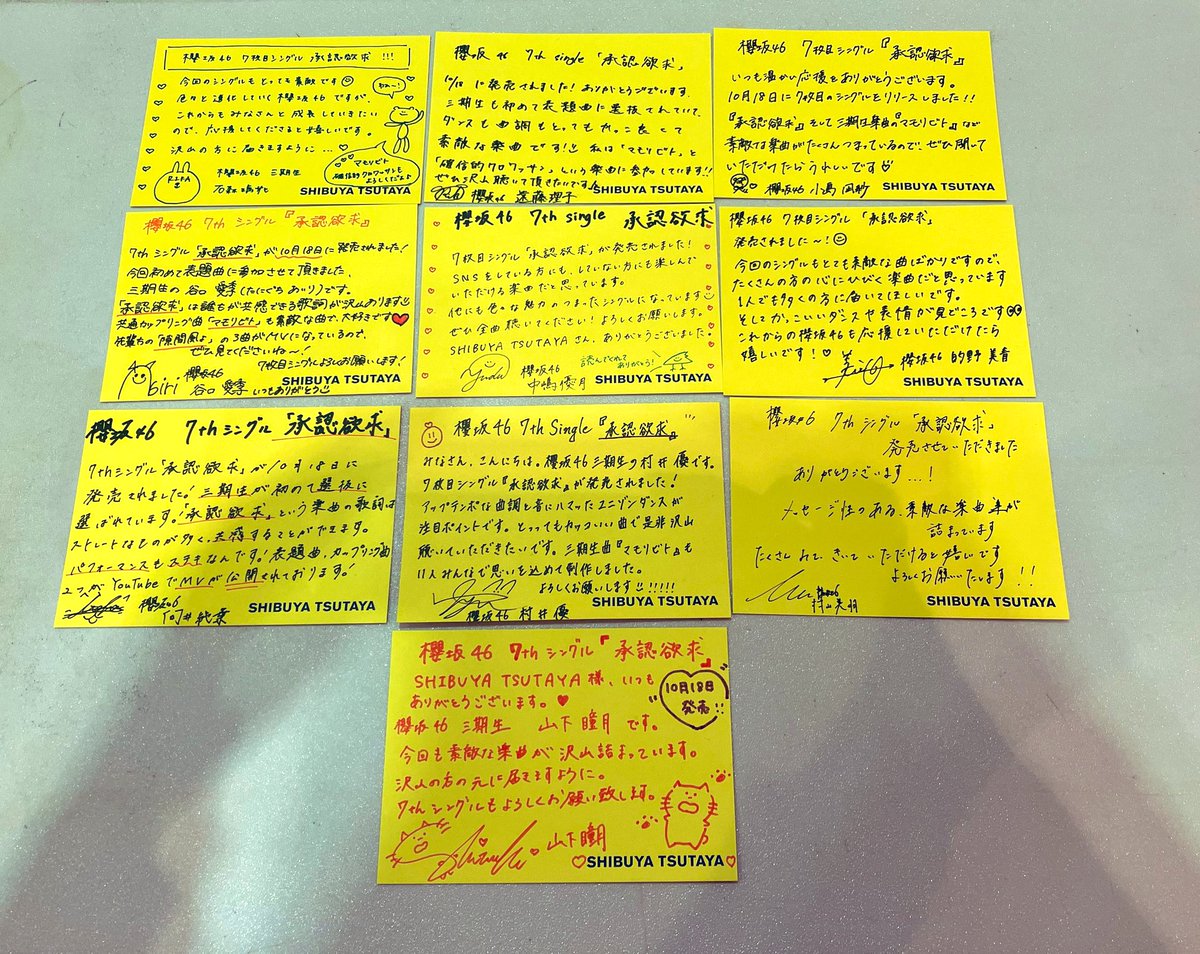 櫻坂46 7枚目シングル 承認欲求 !!!
今回のシングルもとっても素敵です
色々と進化していく櫻坂46ですが、
これからもみなさんと成長していきたい
ので、応援してくださると嬉しいです。
沢山の方に届きますように…♡
わぁ〜!
RIKA
櫻坂46 三期生
マモリビト
確信的クロワッサンも
よろしくだよぉ
SHIBUYA TSUTAYA
櫻坂46 7th single 「承認欲求」
10/18 に発売されました!ありがとうございます。
三期生も初めて表題曲に選抜されていて、
ダンスも曲調もとってもかっこ良くて
素敵な楽曲です!! 私は「マモリビト」と
「確信的クロワッサン」という楽曲に参加しています!!
ぜひ沢山聴いて頂きたいです。
櫻坂46 遠藤理子
SHIBUYA TSUTAYA
櫻坂46 7枚目シングル『承認欲求』
いつも温かい応援をありがとうございます。
10月18日に7枚目のシングルをリリースしました!!
『承認欲求』そして三期生楽曲の『マモリビト』など
素敵な楽曲がたくさんつまっているので、ぜひ聞いて
いただけたらうれしいです♡
櫻坂46 小島凪紗
SHIBUYA TSUTAYA
櫻坂46 7th シングル『承認欲求』
7thシングル「承認欲求」が10月18日に発売されました!
今回初めて表題曲に参加させて頂きました、
三期生の谷口愛季(たにぐちあいり)です。
「承認欲求」は誰もが共感できる歌詞が沢山あります
共通カップリング曲「マモリビト」も素敵な曲で、大好きです♥
先輩方の「隙間風よ」の3曲がMVになっているので、
ぜひ見てくださいね〜!
7枚目シングルよろしくお願いします!
airi
櫻坂46
谷口 愛季 いつもありがとう
SHIBUYA TSUTAYA
櫻坂46 7th single 承認欲求
7枚目シングル「承認欲求」が発売されました!
SNSをしている方にも、していない方にも楽しんで
いただける楽曲だと思っています。
他にも色々な魅力のつまったシングルになっています
ぜひ全曲聴いてください!よろしくお願いします。
SHIBUYA TSUTAYAさん、ありがとうございました。
Yuduki
櫻坂46
中嶋優月
読んでくれて
ありがとう!
SHIBUYA TSUTAYA
櫻坂46 7枚目シングル「承認欲求」
発売されました〜!
今回のシングルもとても素敵な曲ばかりですので、
たくさんの方の心にひびく楽曲だと思っています
1人でも多くの方に届いてほしいです。
そしてかっこいいダンスや表情が見どころです
これからの櫻坂46も応援していただけたら
嬉しいです!♡
櫻坂46 的野美青
SHIBUYA TSUTAYA
櫻坂46 7thシングル「承認欲求」
7thシングル「承認欲求」が10月18日に
発売されました!三期生が初めて選抜に
選ばれています!「承認欲求」という楽曲の歌詞は
ストレートなものが多く、共感することができます。
パフォーマンスもステキなんです!表題曲、カップリング曲
2つがYouTubeでMVが公開されております!
櫻坂46
向井純葉
SHIBUYA TSUTAYA
櫻坂46 7th Single『承認欲求』
みなさん、こんにちは。櫻坂46三期生の村井優です。
7枚目シングル『承認欲求』が発売されました!
アップテンポな曲調と音にハマったユニゾンダンスが
注目ポイントです。とってもカッコいい曲で是非沢山
聴いていただきたいです。三期生曲『マモリビト』も
11人みんなで思いを込めて制作しました。
よろしくお願いします!!!!!
櫻坂46 村井 優
SHIBUYA TSUTAYA
櫻坂46 7th シングル「承認欲求」
発売させていただきました
ありがとうございます…!
メッセージ性のある、素敵な楽曲達が
詰まっています
たくさんみて、きいていただけると嬉しいです
よろしくお願いいたします!!
櫻坂46
村山美羽
SHIBUYA TSUTAYA
櫻坂46 7thシングル『承認欲求』
SHIBUYA TSUTAYA様、いつも
ありがとうございます。♥
10月18日
発売!!
櫻坂46 三期生 山下瞳月です。
今回も素敵な楽曲が沢山詰まっています。
沢山の方の元に届きますように。
7thシングルもよろしくお願い致します。
山下瞳月
♡SHIBUYA TSUTAYA♡